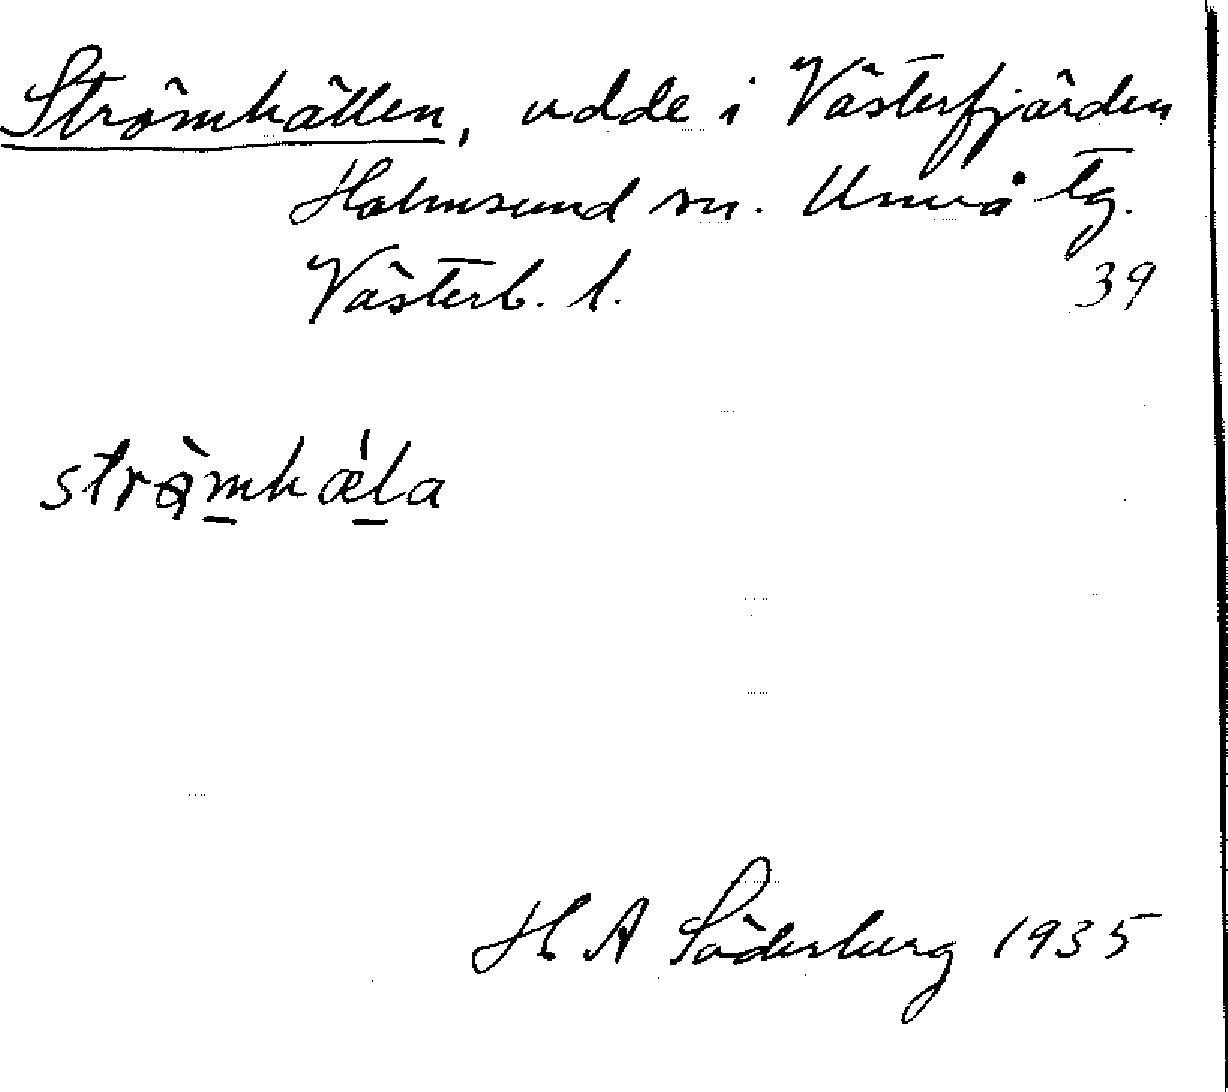 Strömhällen, udde i Västerfjärden
Holmsund sn. Umeå tg.
Västerb. l.
39
strö̀mhæ̍la
H A Söderberg 1935